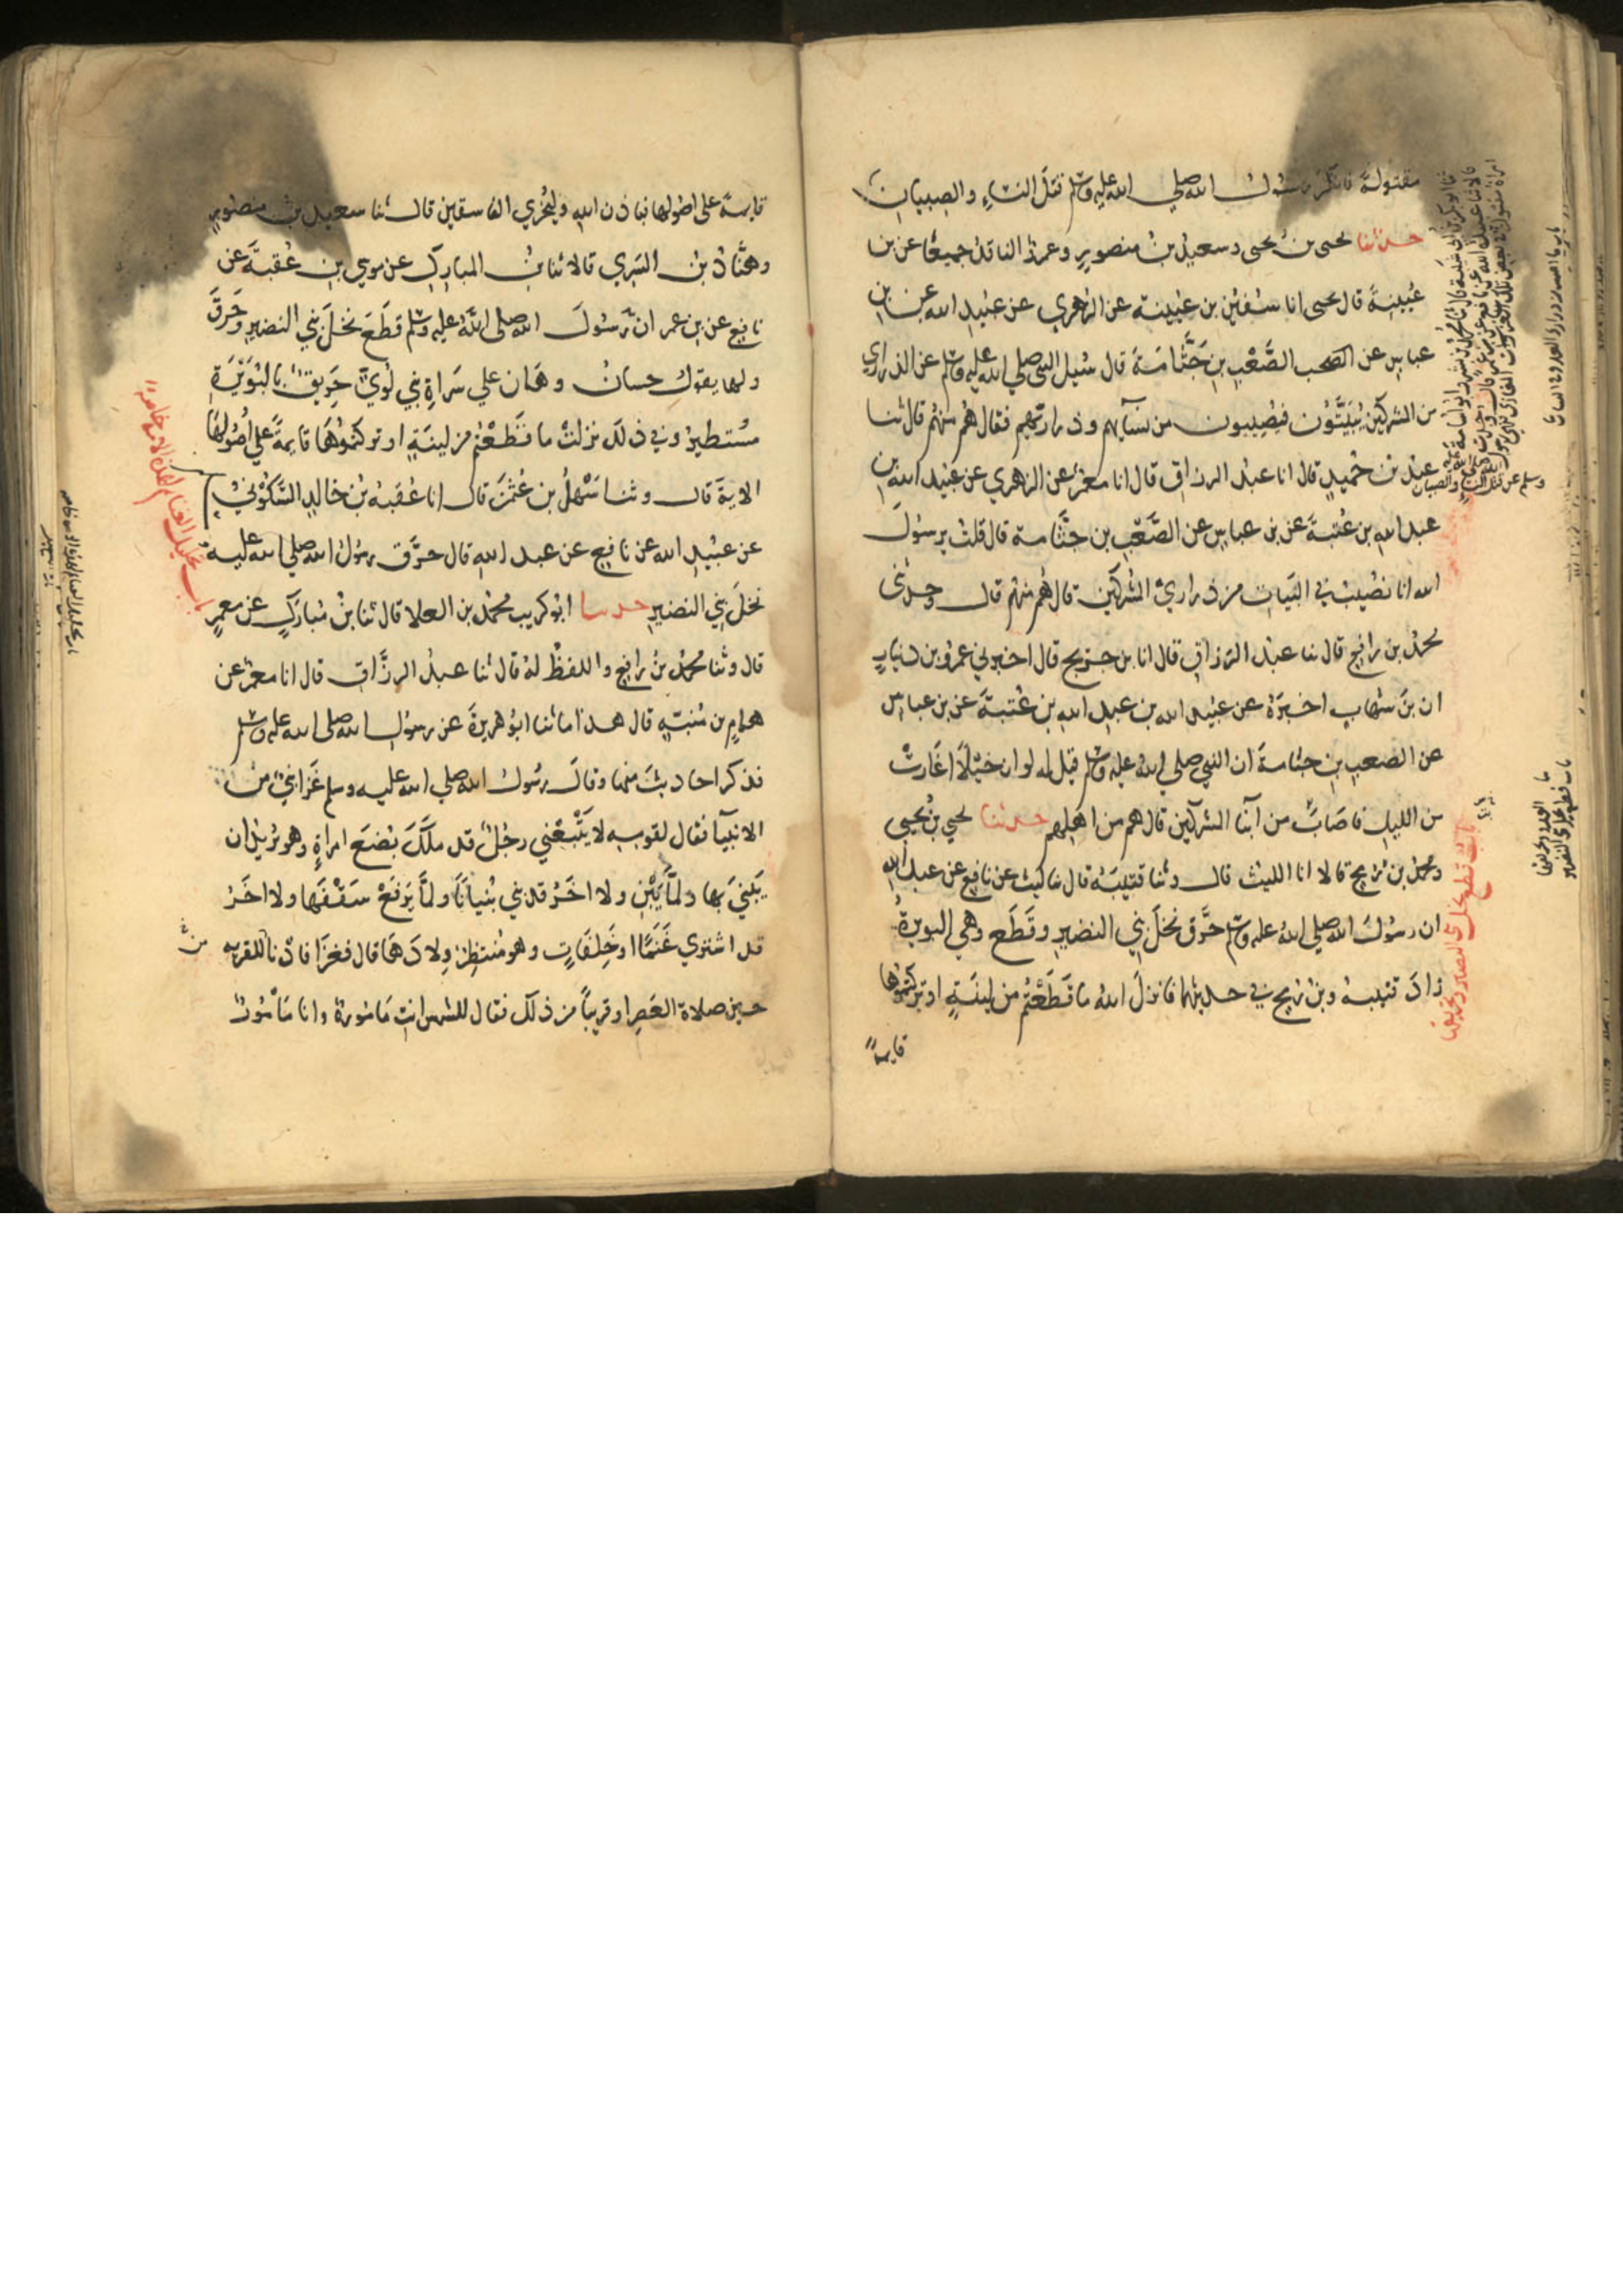 مقتولة فانكر رسول الله صلي الله عليه وسلم قتل النساء والصبيان
حدثنا يحيى بن يحيى وسعيد بن منصور وعمرو الناقد جميعا عن بن
عيينة قال يحيى انا سفين بن عيينة عن الزهري عن عبيد الله عن بن
عباس عن الصعب بن جثامة قال سيل النبي صلي الله عليه وسلم عن الذراري
من المشركين يبيتون فيصيبون من نسايهم وذراريهم فقال هم منهم قال ثنا
عبد بن حميد قال انا عبد الرزاق قال انا معمر عن الزهري عن عبيد الله بن
عبد الله بن عتبة عن بن عباس عن الصعب بن جثامة قال قلت يرسول
الله انا نصيب في البيات من ذراري المشركين قال هم منهم قال وحدثني
محمد بن رافع قال نا عبد الرزاق قال انا بن جريج قال اخبرني عمرو بن دينار
ان بن شهاب اخبره عن عبيد الله بن عبد الله بن عتبة عن بن عباس
عن الصعب بن جثامة ان النبي صلي الله عليه وسلم قيل له لو ان خيلا اغارت
من الليل فاصابت من ابنا المشركين قال هم من ابايهم حدثنا يحيي بن يحيي
ومحمد بن رمح قالا انا الليث قال وثنا قتيبة قال نا ليث عن نافع عن عبد الله
ان رسول الله صلي الله عليه وسلم حرق نخل بني النضير وقطع وهي البويرة
زاد قتيبة وبن رمح في حديثهما فانزل الله ما قطعتم من لينة او تركتموها
قايمة
باب قطع نخل بني النضير وتحريقها
وسلم عن قتل النساء والصبيان
قايمة على اصولها فباذن الله وليخزي الفاسقين قال ثنا سعيد بن منصور
وهناد بن السري قالا ثنا بن المبارك عن موسي بن عقبة عن
نافع عن بن عمر ان رسول الله صلى الله عليه وسلم قطع نخل بني النضير وحرق
ولها يقول حسان وهان علي سراة بني لوي حريق بالبويرة
مستطير وفي ذلك نزلت ما قطعتم من لينة او تركتموها قايمة علي اصولها
الاية قال وثنا سهل بن عثمن قال انا عقبة بن خالد السكوني
عن عبيد الله عن نافع عن عبد الله قال حرق رسول الله صلي الله عليه
نخل بني النضير حدثنا ابو كريب محمد بن العلا قال ثنا بن مبارك عن معمر
قال وثنا محمد بن رافع واللفظ له قال ثنا عبد الرزاق قال انا معمر عن
همام بن منبه قال هذا ما ثنا ابو هريرة عن رسول الله صلى الله عليه وسلم
فذكر احاديث منها وقال رسول الله صلي الله عليه وسلم غزا نبي من
الانبيآ فقال لقومه لا يتبعني رجل قد ملك بضع امراة وهو يريد ان
يبني بها ولما يبن ولا اخر قد بني بنيانا ولما يرفع سقفها ولا اخر
قد اشتري غنما او خلفات وهو منتظر ولادها قال فغزا فادنا للقرية
حين صلاة العصر او قريبا من ذلك فقال للشمس انت مامورة وانا مامور